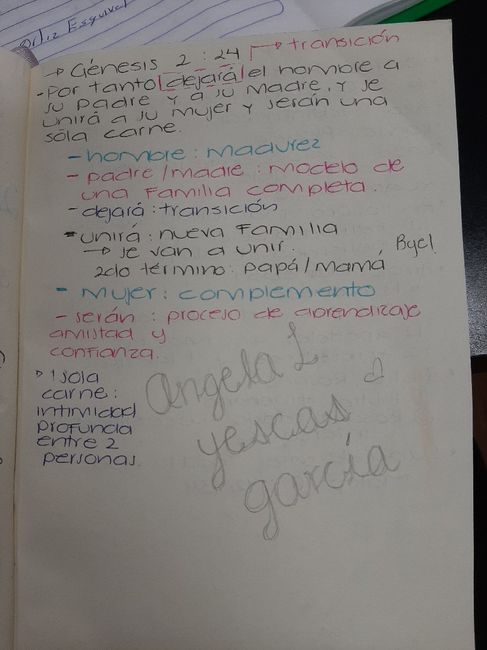 Ortiz Esquivel
→ Génesis 2:24 → transición
- Por tanto dejará el hombre a
su padre y a su Madre, y se
unirá a su mujer y serán una
sóla carne.
- hombre: madurez
- padre/madre: modelo de
una familia completa.
- dejará: transición
- unirá: nueva Familia
→ se van a unir.
2do término: papá/mamá
Bye!
- Mujer: complemento
- serán: proceso de aprendizaje
amistad y
confianza.
1 sola
carne:
intimidad
profunda
entre 2
personas
angela L
yescas
garcía